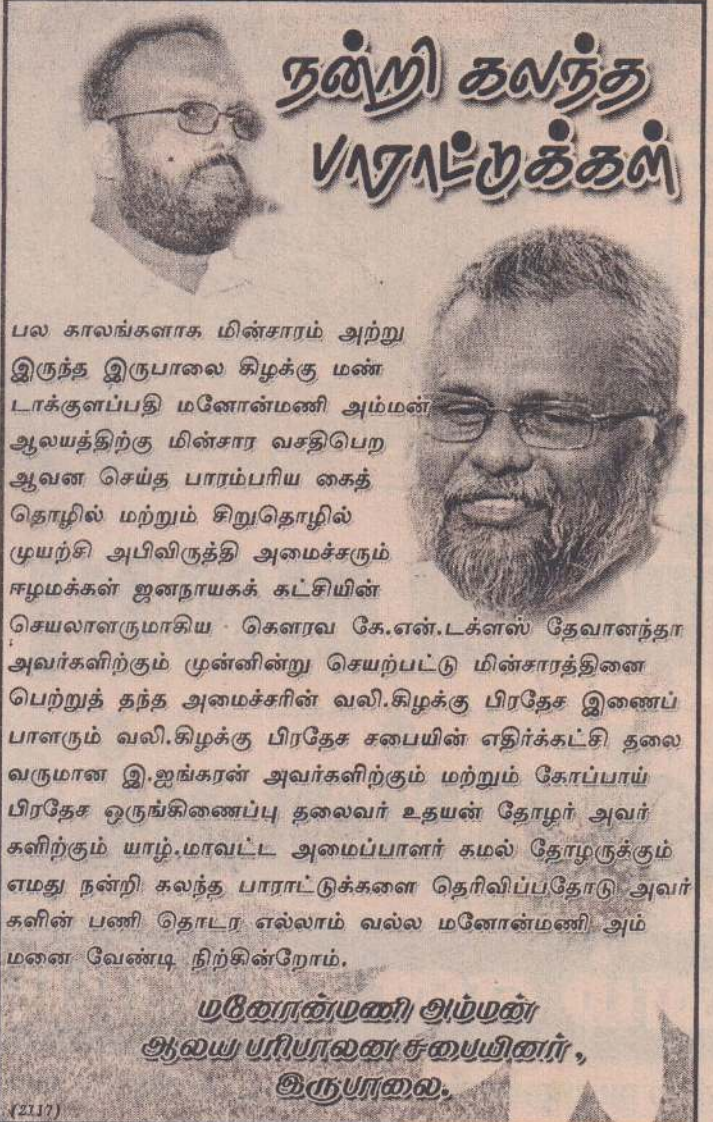 நன்றி கலந்த
பாராட்டுக்கள்
பல காலங்களாக மின்சாரம் அற்று
இருந்த இருபாலை கிழக்கு மண்
டாக்குளப்பதி மனோன்மணி அம்மன்
ஆலயத்திற்கு மின்சார வசதிபெற
ஆவன செய்த பாரம்பரிய கைத்
தொழில் மற்றும் சிறுதொழில்
முயற்சி அபிவிருத்தி அமைச்சரும்
ஈழமக்கள் ஜனநாயகக் கட்சியின்
செயலாளருமாகிய கௌரவ கே.என்.டக்ளஸ் தேவானந்தா
அவர்களிற்கும் முன்னின்று செயற்பட்டு மின்சாரத்தினை
பெற்றுத் தந்த அமைச்சரின் வலி.கிழக்கு பிரதேச இணைப்
பாளரும் வலி.கிழக்கு பிரதேச சபையின் எதிர்க்கட்சி தலை
வருமான இ.ஐங்கரன் அவர்களிற்கும் மற்றும் கோப்பாய்
பிரதேச ஒருங்கிணைப்பு தலைவர் உதயன் தோழர் அவர்
களிற்கும் யாழ்.மாவட்ட அமைப்பாளர் கமல் தோழருக்கும்
எமது நன்றி கலந்த பாராட்டுக்களை தெரிவிப்பதோடு அவர்
களின் பணி தொடர எல்லாம் வல்ல மனோன்மணி அம்
மனை வேண்டி நிற்கின்றோம்.
மனோன்மணி அம்மன்
ஆலய பரிபாலன சபையினர்,
இருபாலை.
(2117)